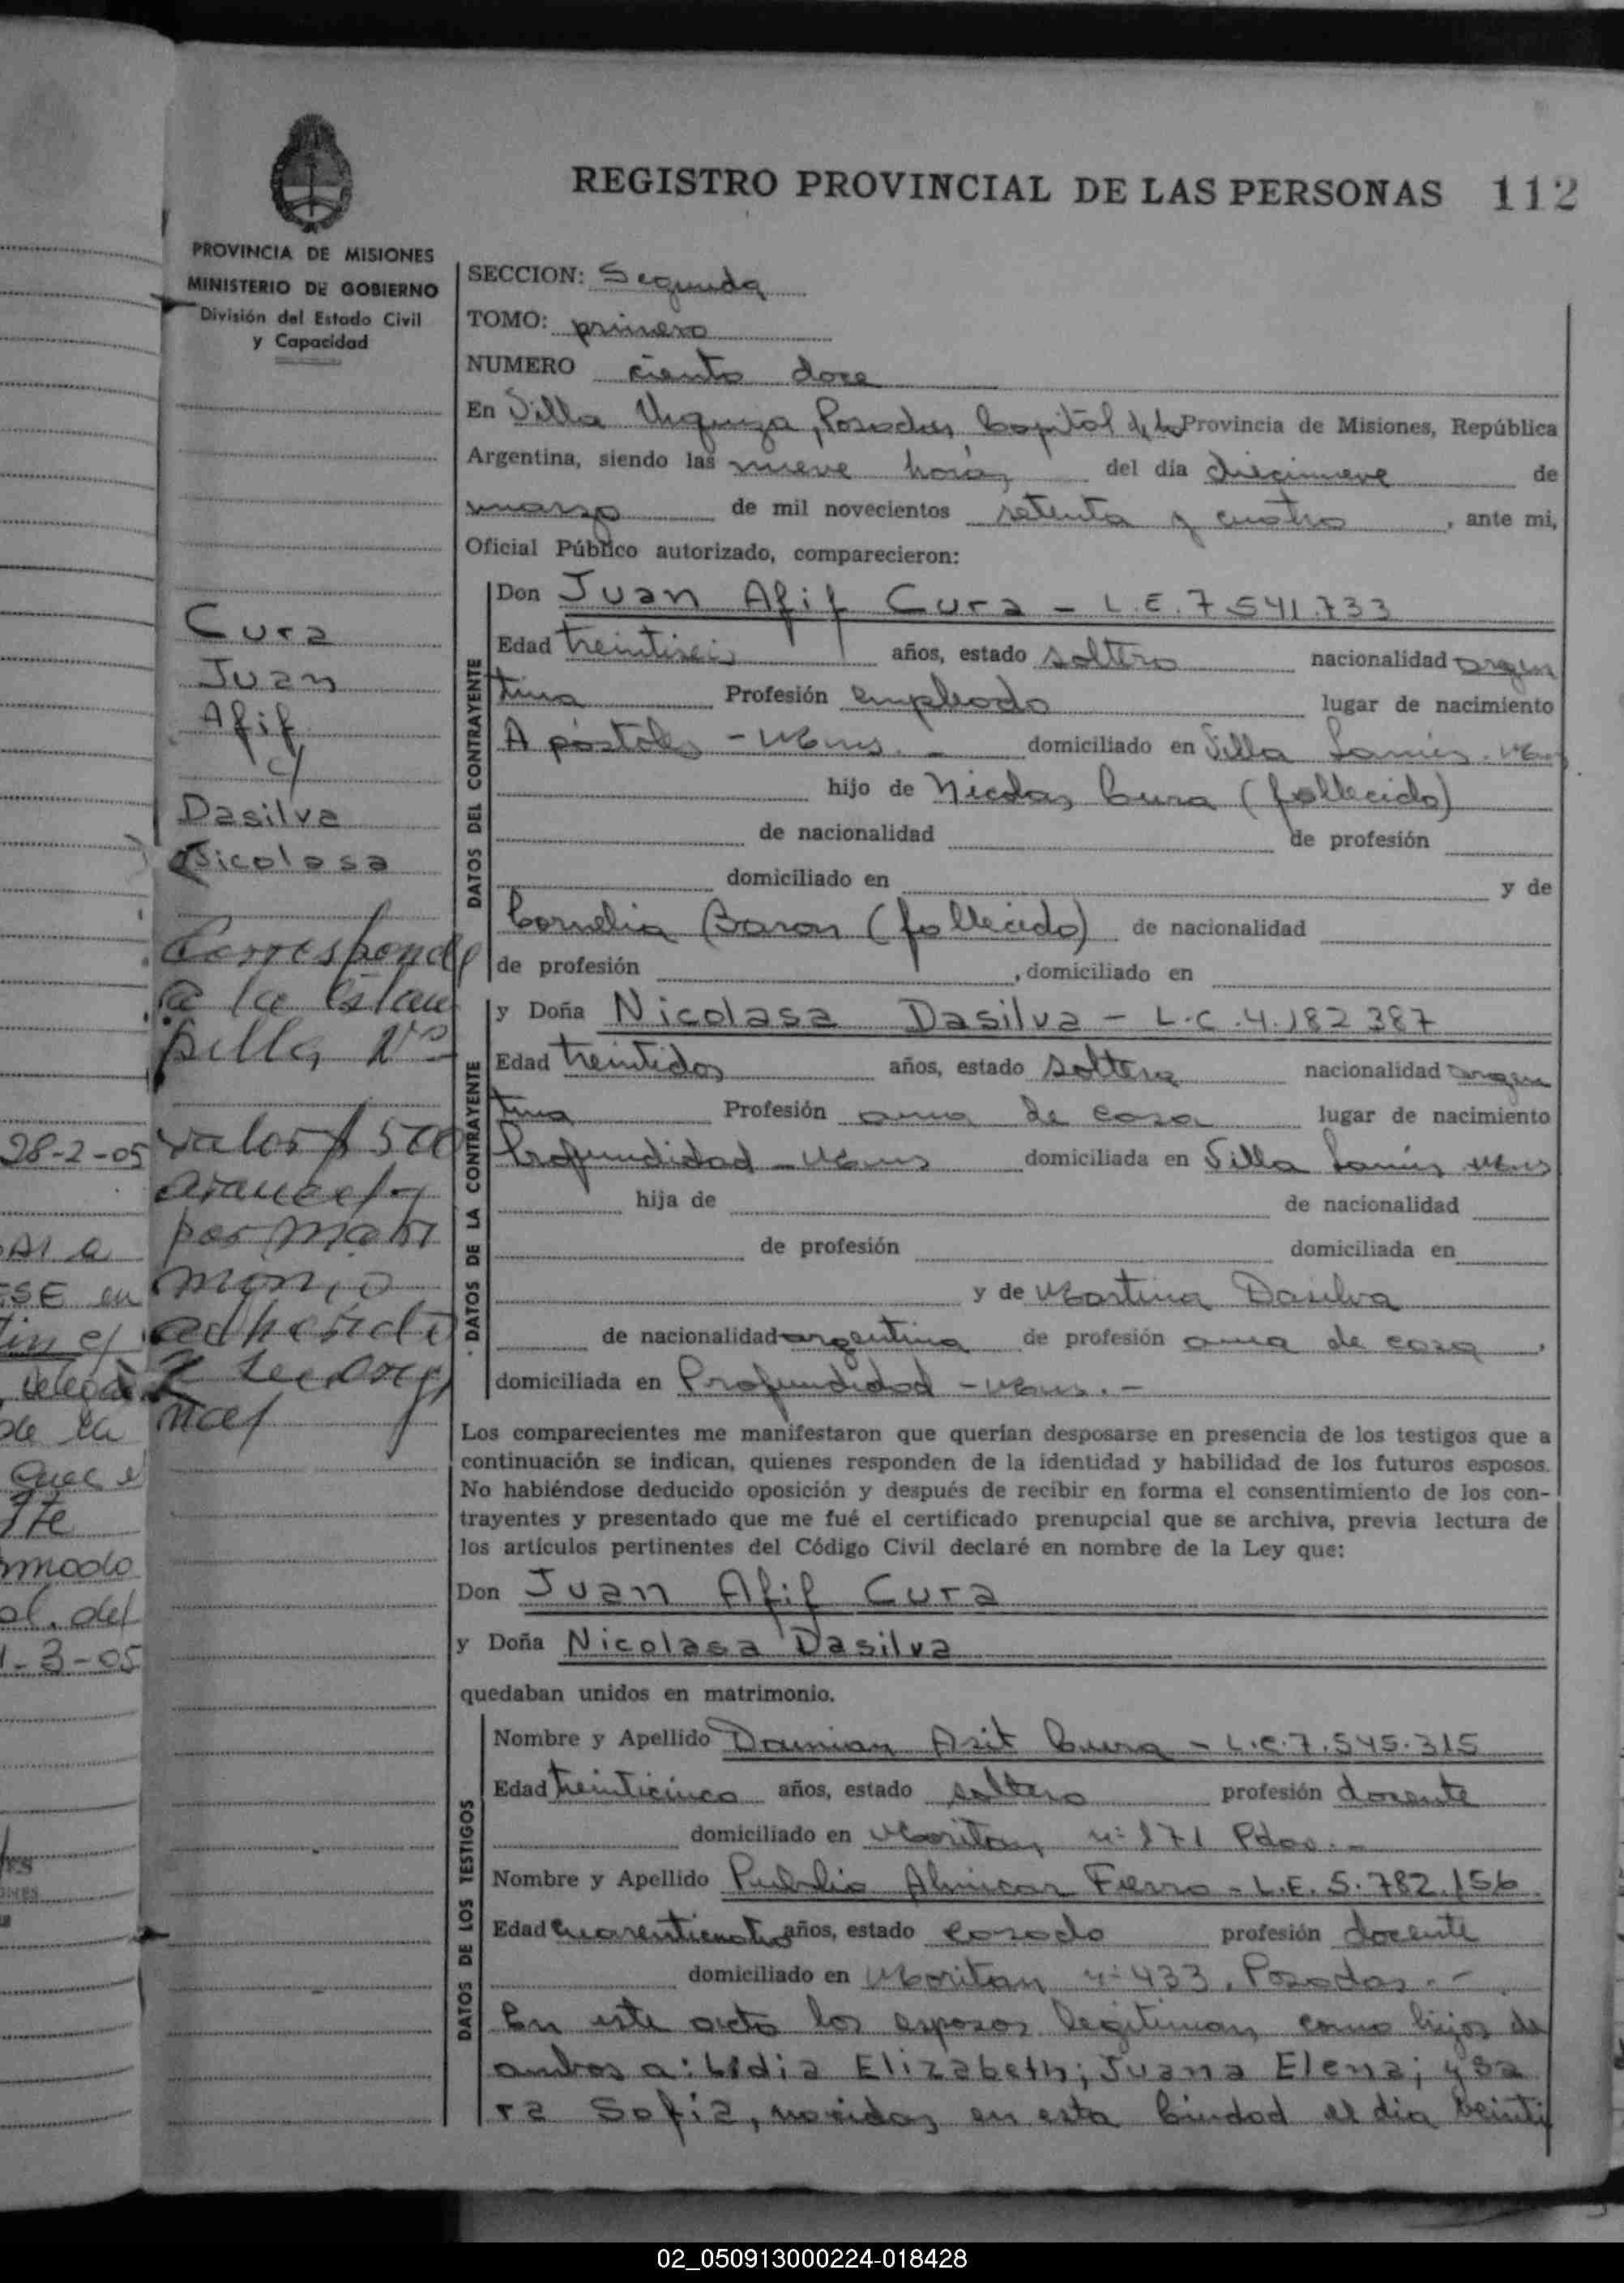 REGISTRO PROVINCIAL DE LAS PERSONAS 112
PROVINCIA DE MISIONES
MINISTERIO DE GOBIERNO
División del Estado Civil
y Capacidad
SECCION: Segunda
TOMO: primero
NUMERO ciento doce
En Villa Urquiza, Posadas Capital de la Provincia de Misiones, República
Argentina, siendo las nueve horas del día diecinueve de
marzo de mil novecientos setenta y cuatro, ante mi,
Oficial Público autorizado, comparecieron:
Cura
Juan
Afif
c/
Dasilva
Nicolasa
Corresponde
a la estam
pilla Nº
valor $ 500
arancel
por matri
monio
adherida
DATOS DEL CONTRAYENTE
Don Juan Afif Cura - L.E. 7.541.733
Edad treintiseis años, estado soltero nacionalidad argen
tina Profesión empleado lugar de nacimiento
Apóstoles - Mnes. - domiciliado en Villa Lanús. Mnes
hijo de Nicolas Cura (fallecido)
de nacionalidad de profesión
domiciliado en y de
Cornelia Baron (fallecida) de nacionalidad
de profesión , domiciliado en
DATOS DE LA CONTRAYENTE
y Doña Nicolasa Dasilva - L.C. 4.182 387
Edad treintidos años, estado soltera nacionalidad argen
tina Profesión ama de casa lugar de nacimiento
Profundidad - Mnes domiciliada en Villa Lanús Mnes
hija de de nacionalidad
de profesión domiciliada en
y de Martina Dasilva
de nacionalidad argentina de profesión ama de casa,
domiciliada en Profundidad - Mnes. -
Los comparecientes me manifestaron que querían desposarse en presencia de los testigos que a
continuación se indican, quienes responden de la identidad y habilidad de los futuros esposos.
No habiéndose deducido oposición y después de recibir en forma el consentimiento de los con-
trayentes y presentado que me fué el certificado prenupcial que se archiva, previa lectura de
los artículos pertinentes del Código Civil declaré en nombre de la Ley que:
Don Juan Afif Cura
y Doña Nicolasa Dasilva
quedaban unidos en matrimonio.
DATOS DE LOS TESTIGOS
Nombre y Apellido Damian Asit Cura - L.E. 7.545.315
Edad treinticinco años, estado soltero profesión docente
domiciliado en Moritan nº 171 Pdas. -
Nombre y Apellido Publio Almicar Fierro - L.E. 5.782.156
Edad cuarenticuatro años, estado casado profesión docente
domiciliado en Moritan nº 433, Posadas. -
En este acto los esposos legitiman como hijos de
ambos a: Lidia Elizabeth; Juana Elena; y Sa
ra Sofia, nacidas en esta Ciudad el dia veinti
28-2-05
ESE en
de la
modo
al. del
1-3-05
02_050913000224-018428